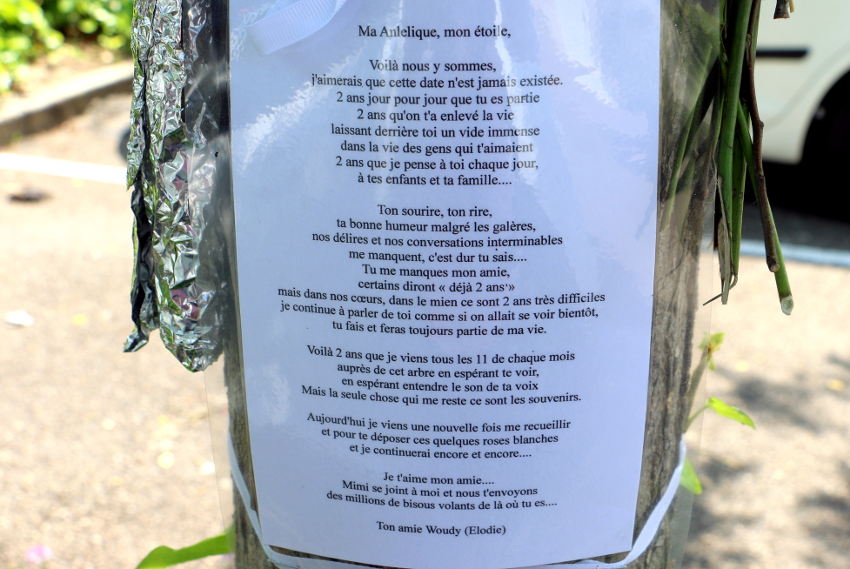 Ma Anlelique, mon étoile,
Voilà nous y sommes,
j'aimerais que cette date n'est jamais existée.
2 ans jour pour jour que tu es partie
2 ans qu'on t'a enlevé la vie
laissant derrière toi un vide immense
dans la vie des gens qui t'aimaient
2 ans que je pense à toi chaque jour,
à tes enfants et ta famille....
Ton sourire, ton rire,
ta bonne humeur malgré les galères,
nos délires et nos conversations interminables
me manquent, c'est dur tu sais....
Tu me manques mon amie,
certains diront « déjà 2 ans »
mais dans nos cœurs, dans le mien ce sont 2 ans très difficiles
je continue à parler de toi comme si on allait se voir bientôt,
tu fais et feras toujours partie de ma vie.
Voilà 2 ans que je viens tous les 11 de chaque mois
auprès de cet arbre en espérant te voir,
en espérant entendre le son de ta voix
Mais la seule chose qui me reste ce sont les souvenirs.
Aujourd'hui je viens une nouvelle fois me recueillir
et pour te déposer ces quelques roses blanches
et je continuerai encore et encore....
Je t'aime mon amie....
Mimi se joint à moi et nous t'envoyons
des millions de bisous volants de là où tu es....
Ton amie Woudy (Elodie)